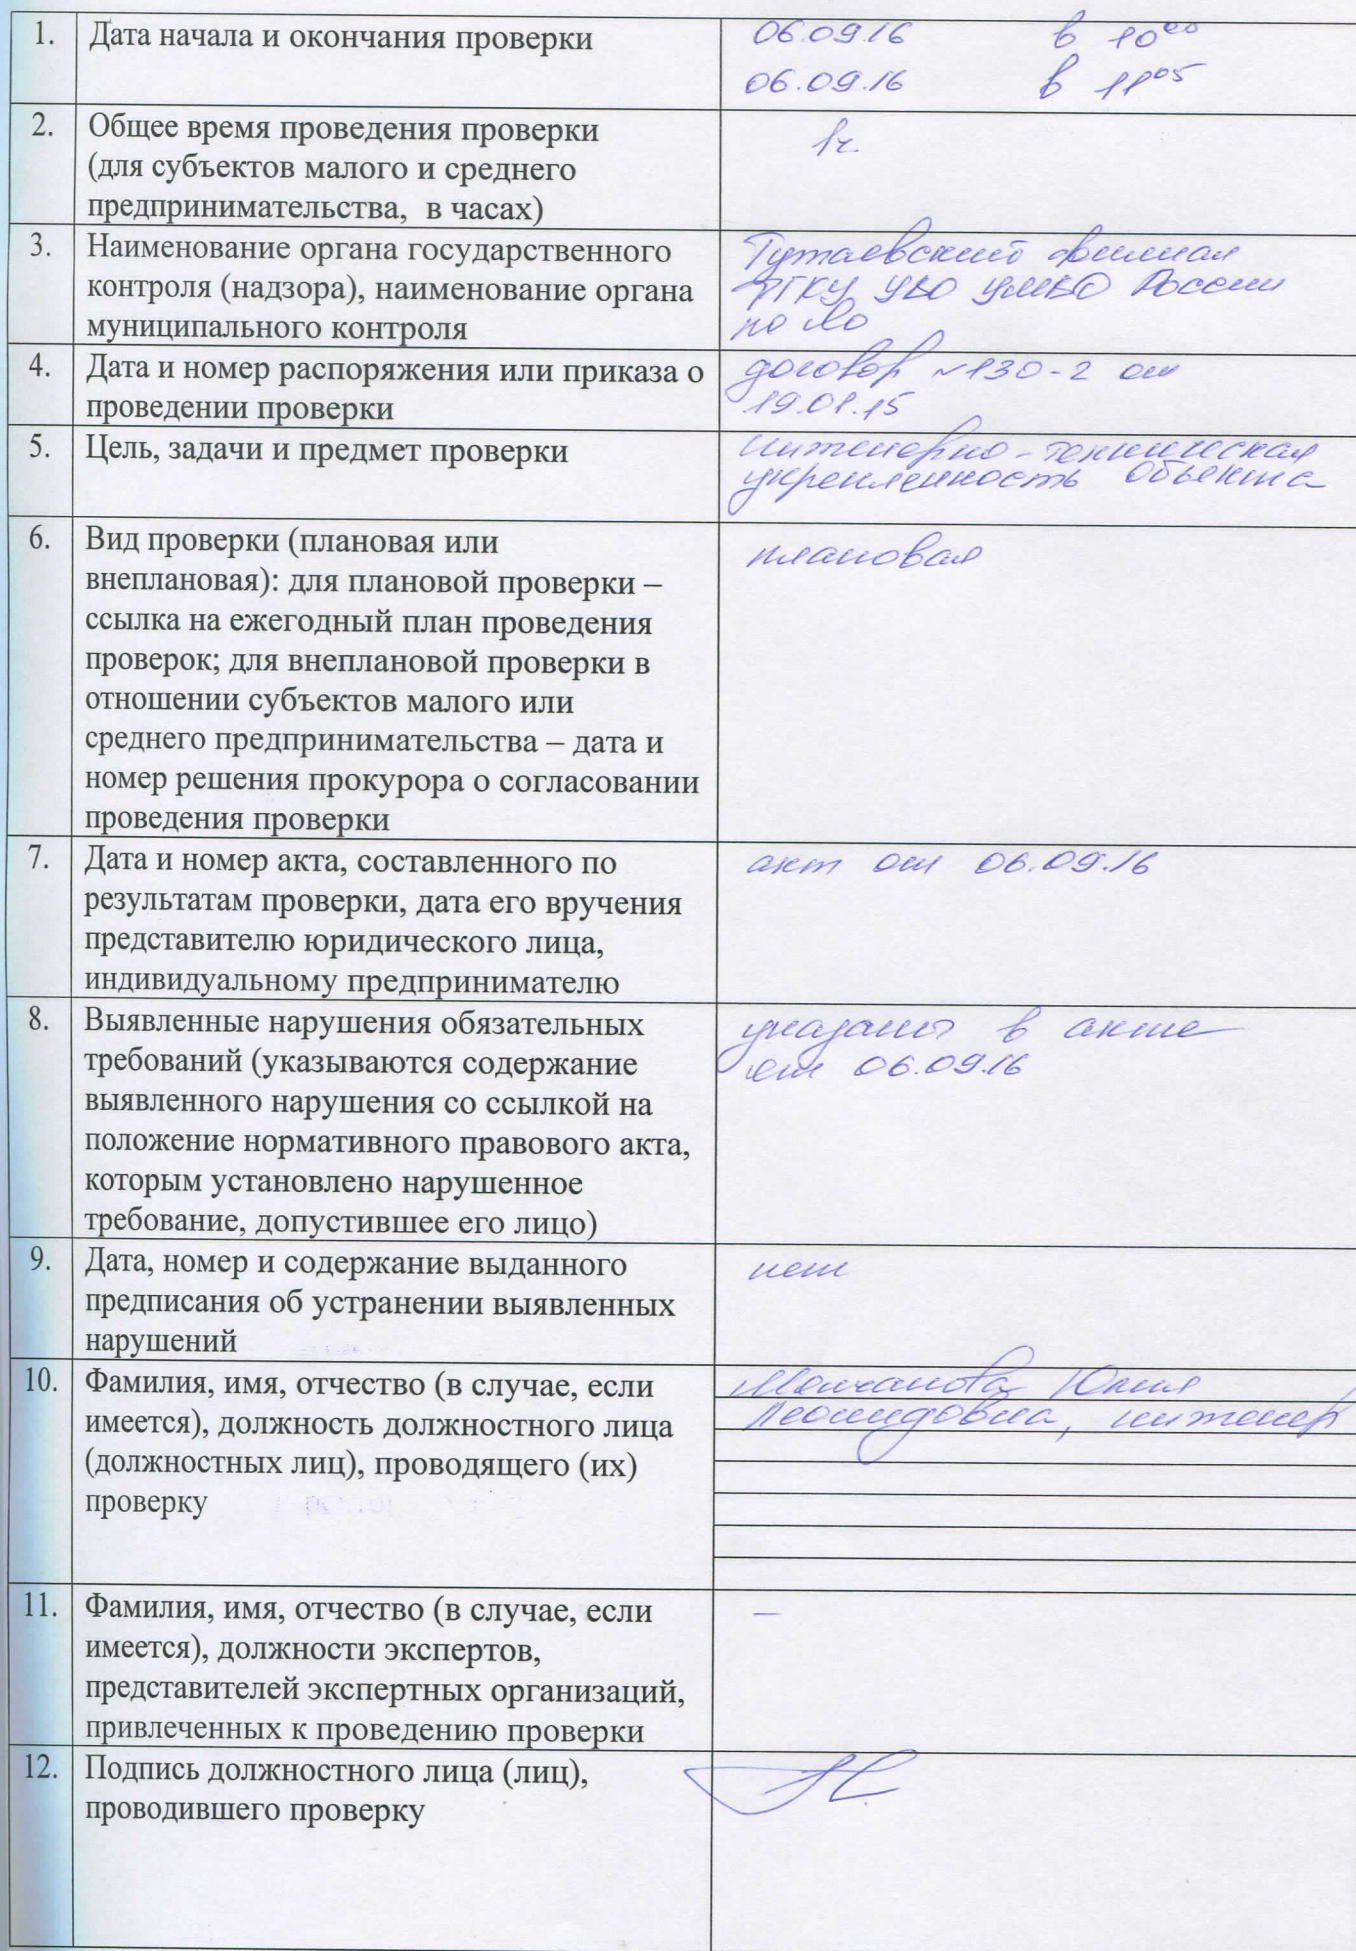 1. Дата начала и окончания проверки
06.09.16 в 10⁰⁰
06.09.16 в 11⁰⁵
2. Общее время проведения проверки
(для субъектов малого и среднего
предпринимательства, в часах)
1ч.
3. Наименование органа государственного
контроля (надзора), наименование органа
муниципального контроля
Тутаевский филиал
ФГКУ УВО УМВД России
по ЯО
4. Дата и номер распоряжения или приказа о
проведении проверки
договор №130-2 от
19.01.15
5. Цель, задачи и предмет проверки
инженерно-техническая
укрепленность объекта
6. Вид проверки (плановая или
внеплановая): для плановой проверки –
ссылка на ежегодный план проведения
проверок; для внеплановой проверки в
отношении субъектов малого или
среднего предпринимательства – дата и
номер решения прокурора о согласовании
проведения проверки
плановая
7. Дата и номер акта, составленного по
результатам проверки, дата его вручения
представителю юридического лица,
индивидуальному предпринимателю
акт от 06.09.16
8. Выявленные нарушения обязательных
требований (указываются содержание
выявленного нарушения со ссылкой на
положение нормативного правового акта,
которым установлено нарушенное
требование, допустившее его лицо)
указаны в акте
от 06.09.16
9. Дата, номер и содержание выданного
предписания об устранении выявленных
нарушений
нет
10. Фамилия, имя, отчество (в случае, если
имеется), должность должностного лица
(должностных лиц), проводящего (их)
проверку
Молчанова Юлия
Леонидовна, инженер
11. Фамилия, имя, отчество (в случае, если
имеется), должности экспертов,
представителей экспертных организаций,
привлеченных к проведению проверки
—
12. Подпись должностного лица (лиц),
проводившего проверку